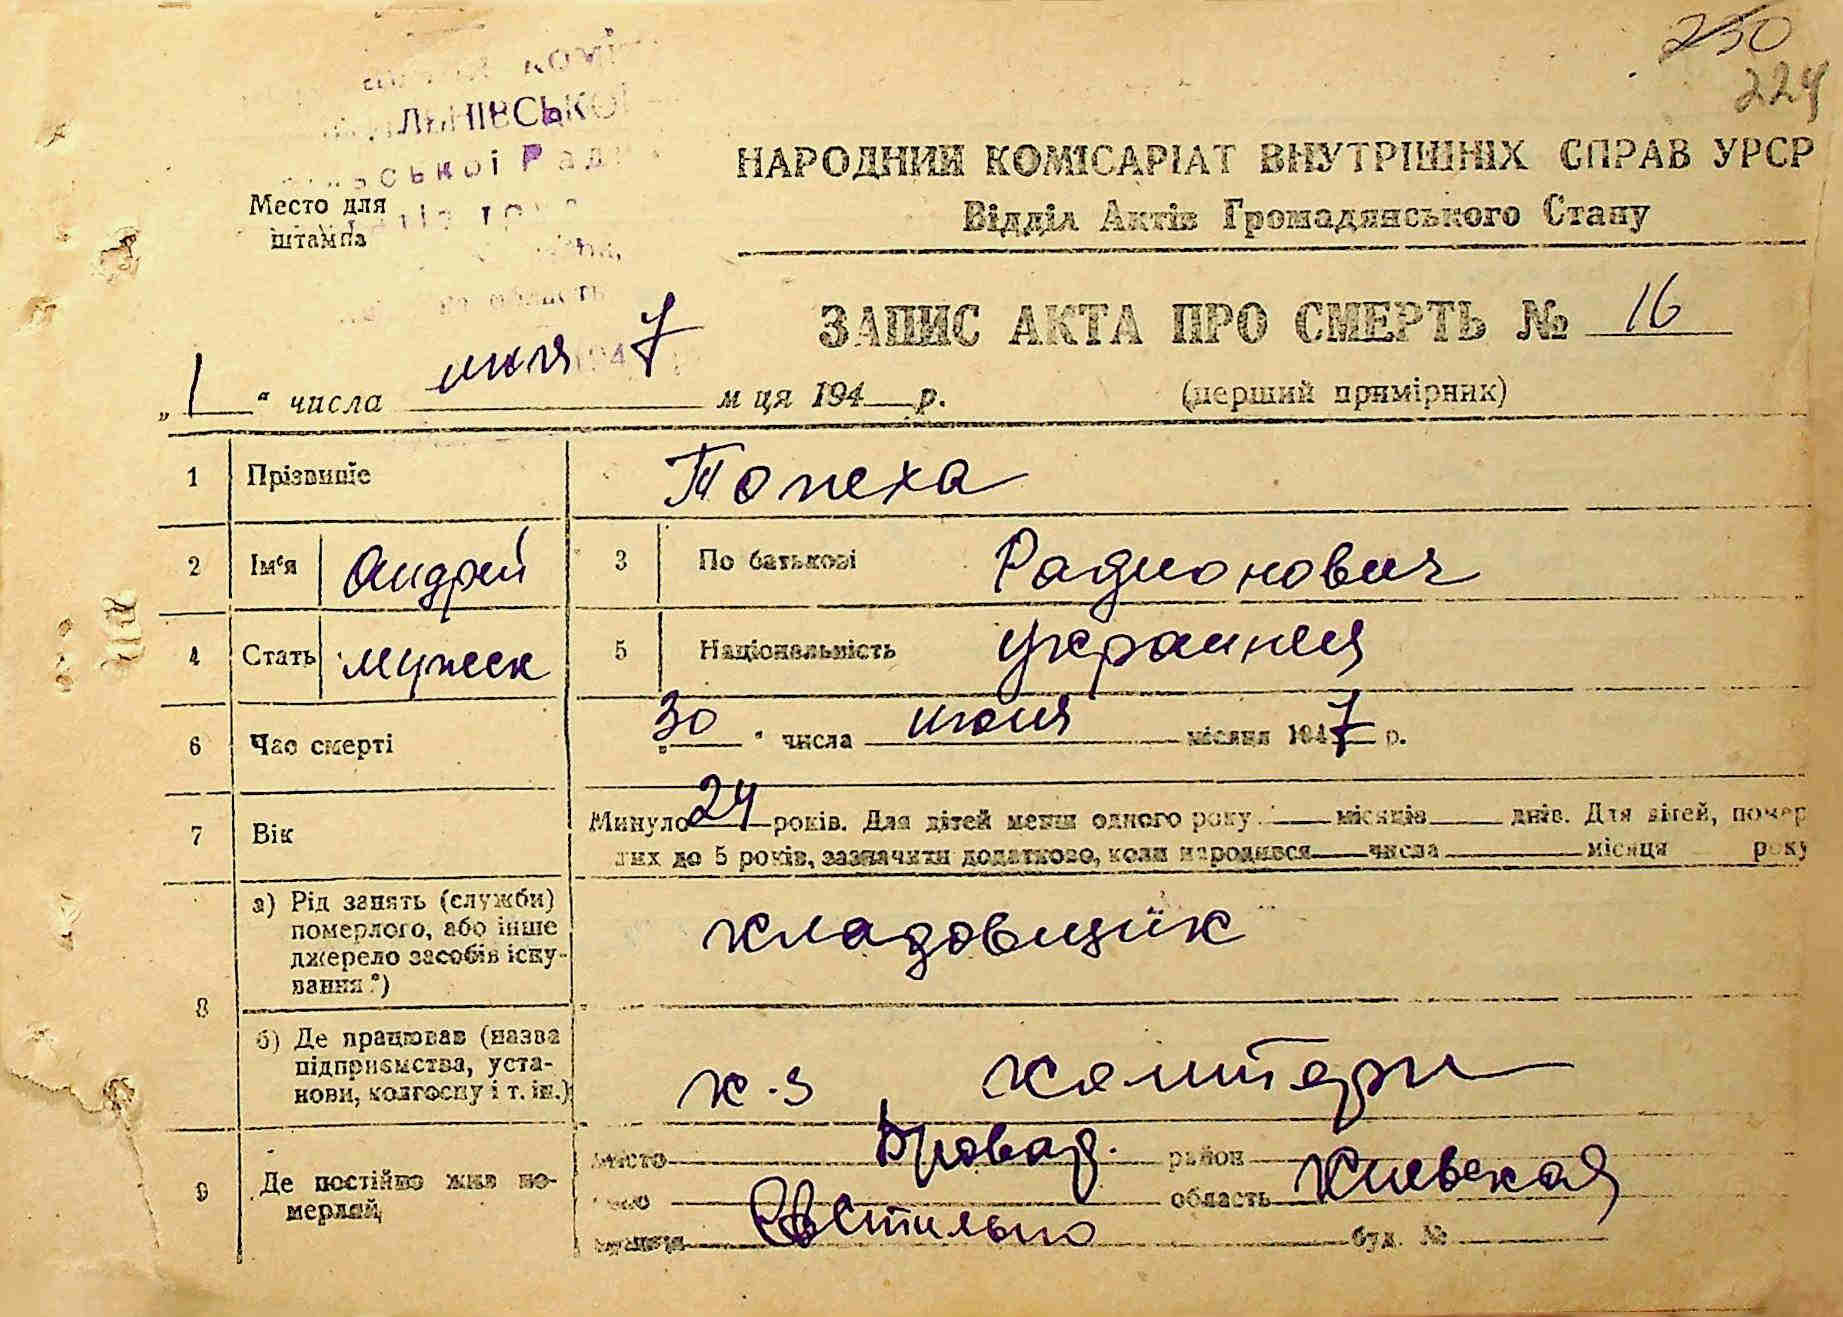 250
224
ЛЬНІВСЬКОЇ
НАРОДНИЙ КОМІСАРІАТ ВНУТРІШНІХ СПРАВ УРСР
Відділ Актів Громадянського Стану
Место для
штампа
ЗАПИС АКТА ПРО СМЕРТЬ № 16
„1“ числа июля 7 м ця 194 р.
(перший примірник)
1 Прізвище Топеха
2 Ім'я Андрей 3 По батькові Радионович
4 Стать мужск 5 Національність украинец
6 Час смерті „30“ числа июня місяця 1947 р.
7 Вік Минуло 24 років. Для дітей менш одного року місяців днів. Для дітей, помер
лих до 5 років, зазначити додатково, коли народився числа місяця року
8 а) Рід занять (служби)
померлого, або інше
джерело засобів існу-
вання *)
кладовщик
б) Де працював (назва
підприємства, уста-
нови, колгоспу і т. ін.)
к-з
9 Де постійно жив по-
мерлий
місто Бровар. район
село область Киевская
вулиця буд. №